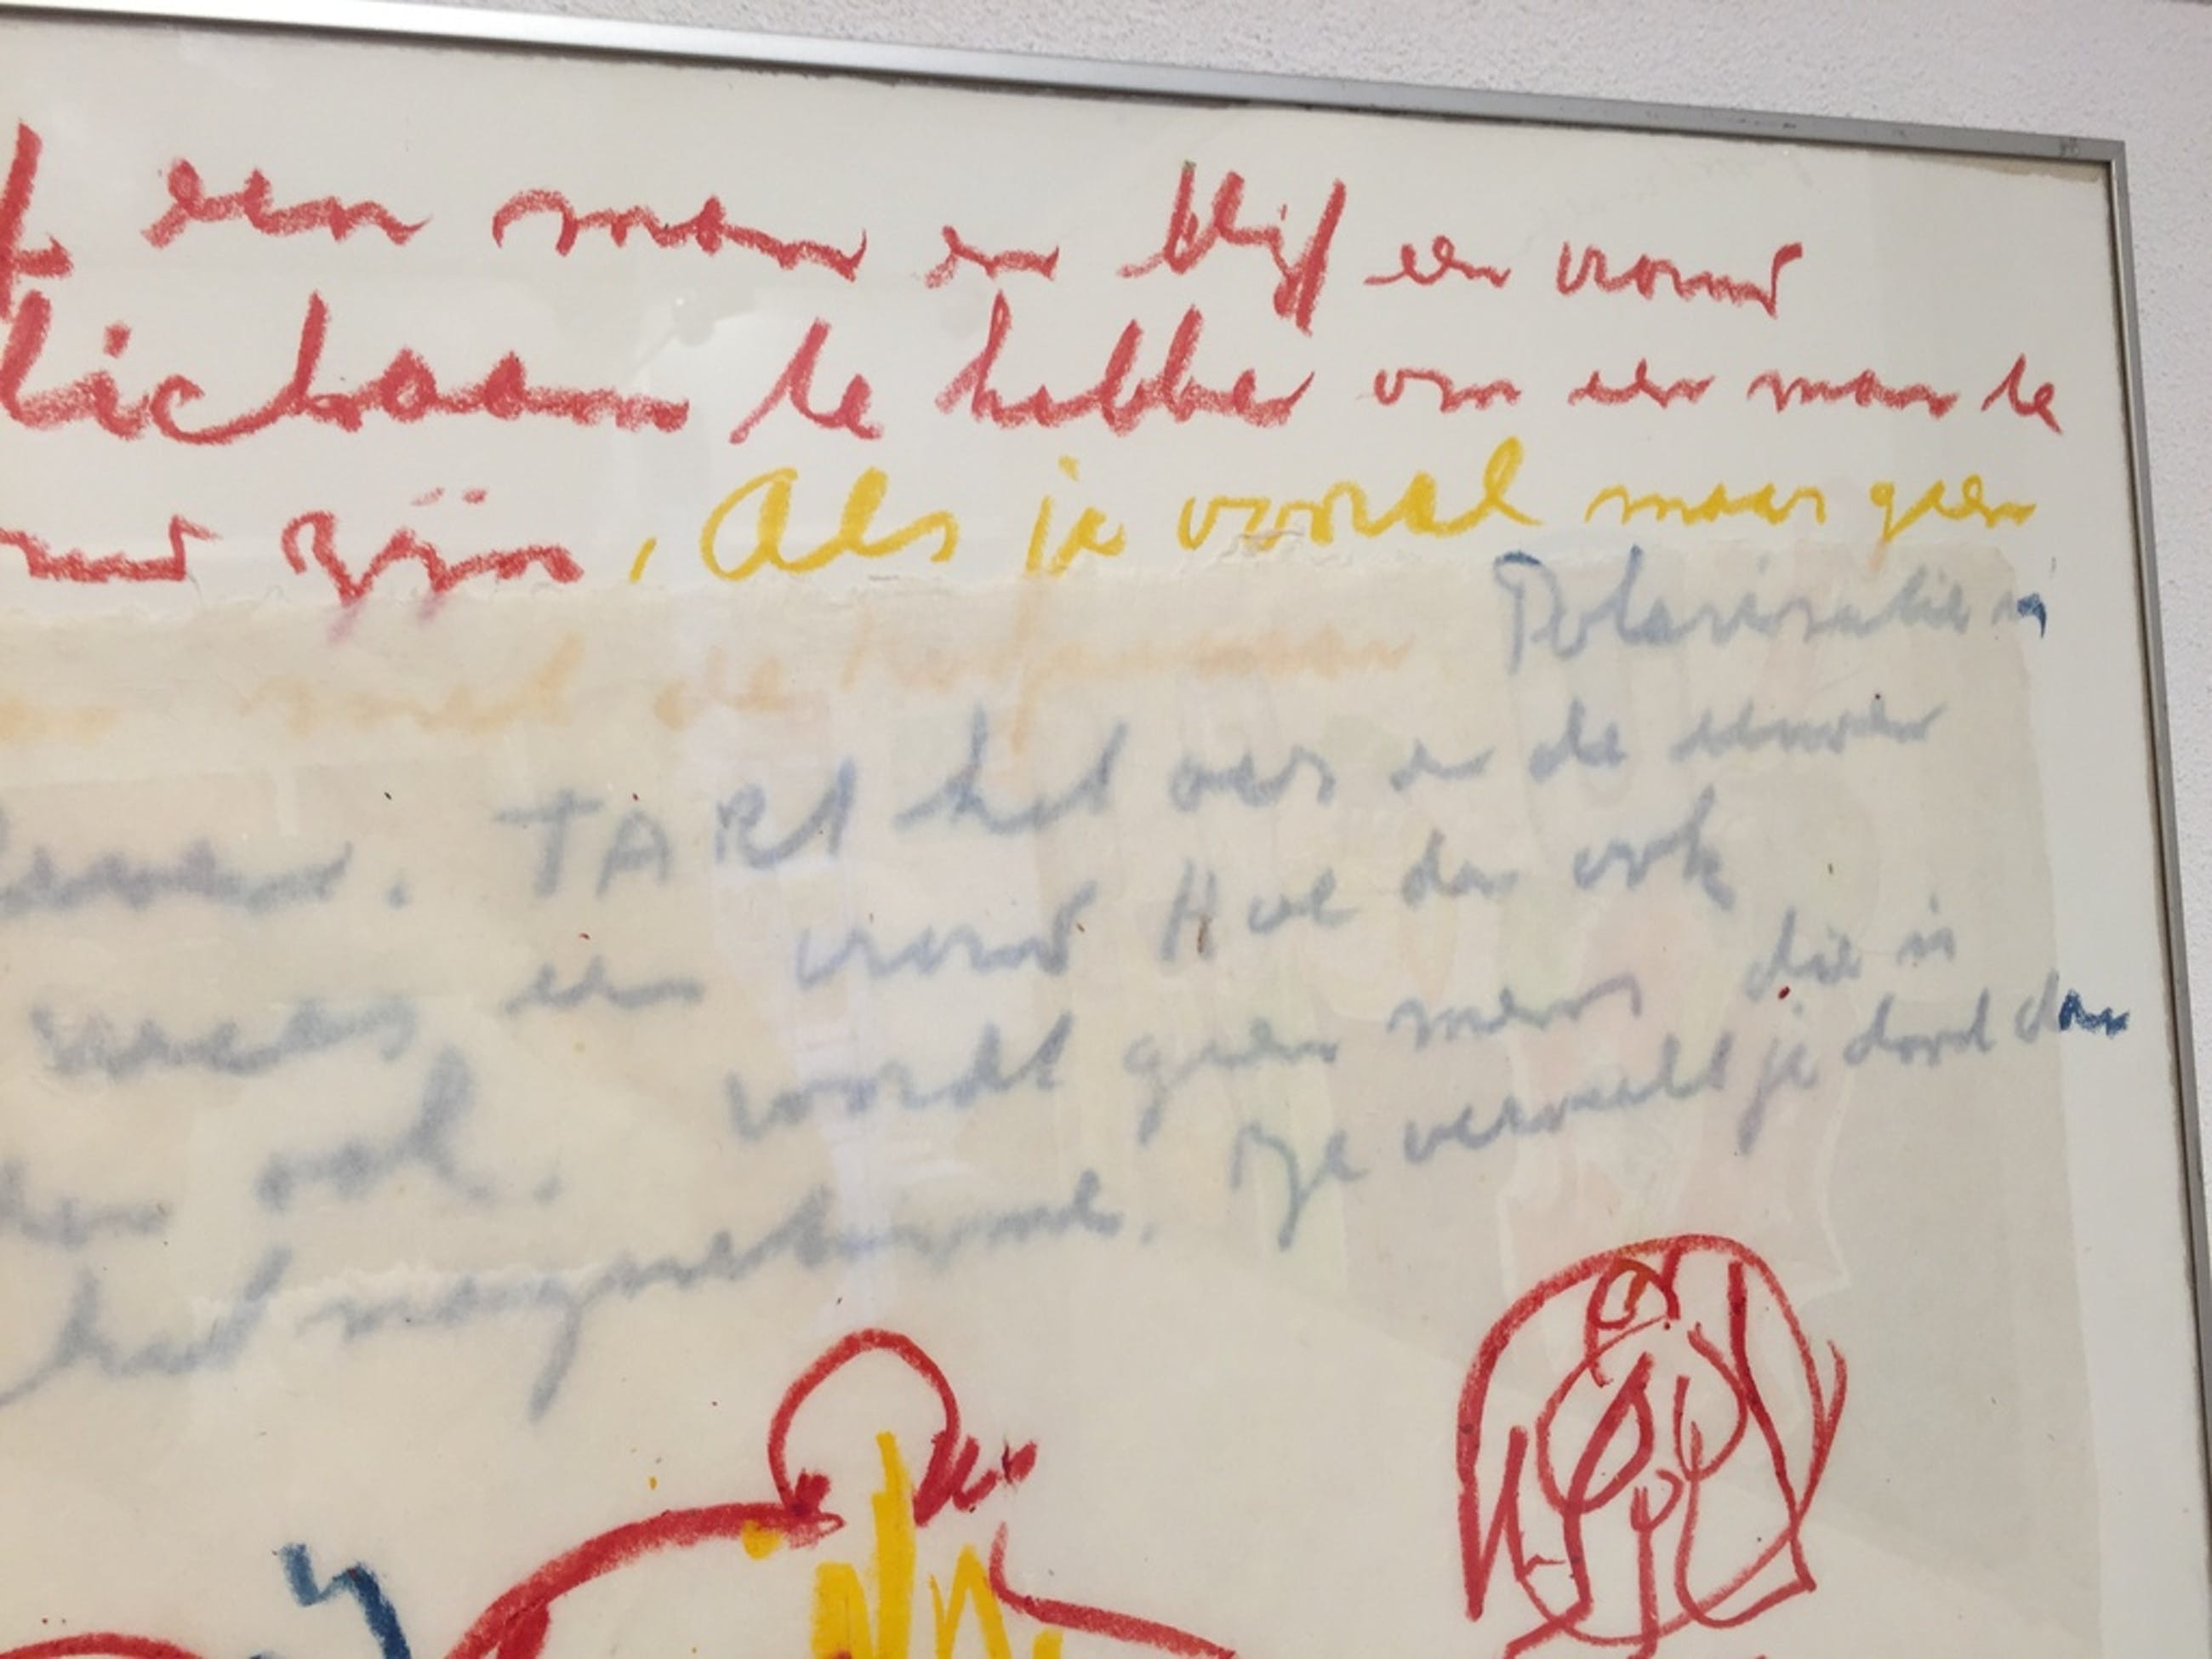 een man en blijf een vrouw
lichaam te hebben om een man te
zijn, Als je vooral maar geen
met de Polarisatie is
TART het over en de
wees een vrouw Hoe dan ook
ook. wordt geen mens die is
het Je verveelt je dood dan